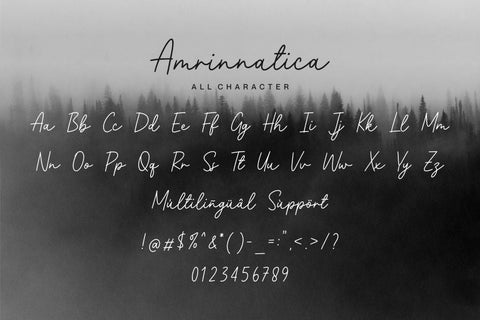 Amrinnatica
ALL CHARACTER
Aa Bb Cc Dd Ee Ff Gg Hh Ii Jj Kk Ll Mm
Nn Oo Pp Qq Rr Ss Tt Uu Vv Ww Xx Yy Zz
Múltilíñgüâl Süppört
!@#$%^&*()-_=:",<.>/?
0123456789